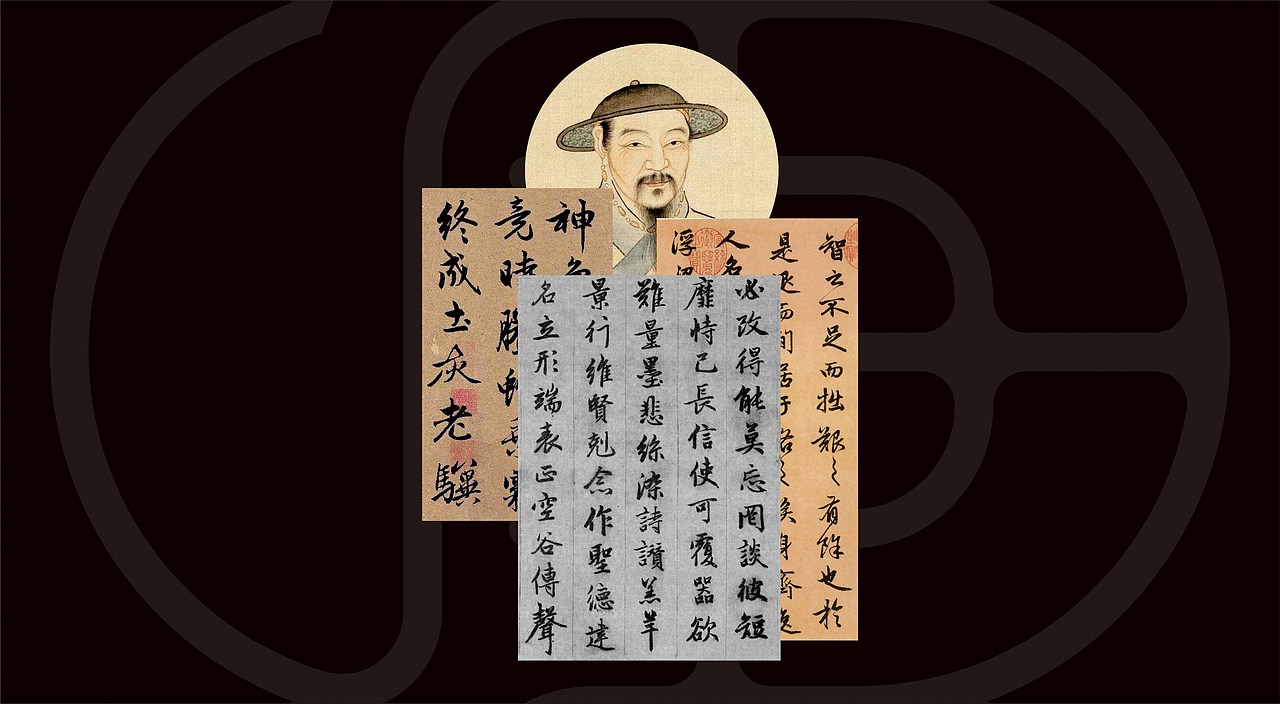 智之不足而拙艱之有餘也於
是退而閒居于洛之涘身齊逸
人名
浮
必改得能莫忘罔談彼短
靡恃己長信使可覆器欲
難量墨悲絲染詩讚羔羊
景行維賢剋念作聖德建
名立形端表正空谷傳聲
神
竟時騰蛇乘霧
終成土灰老驥